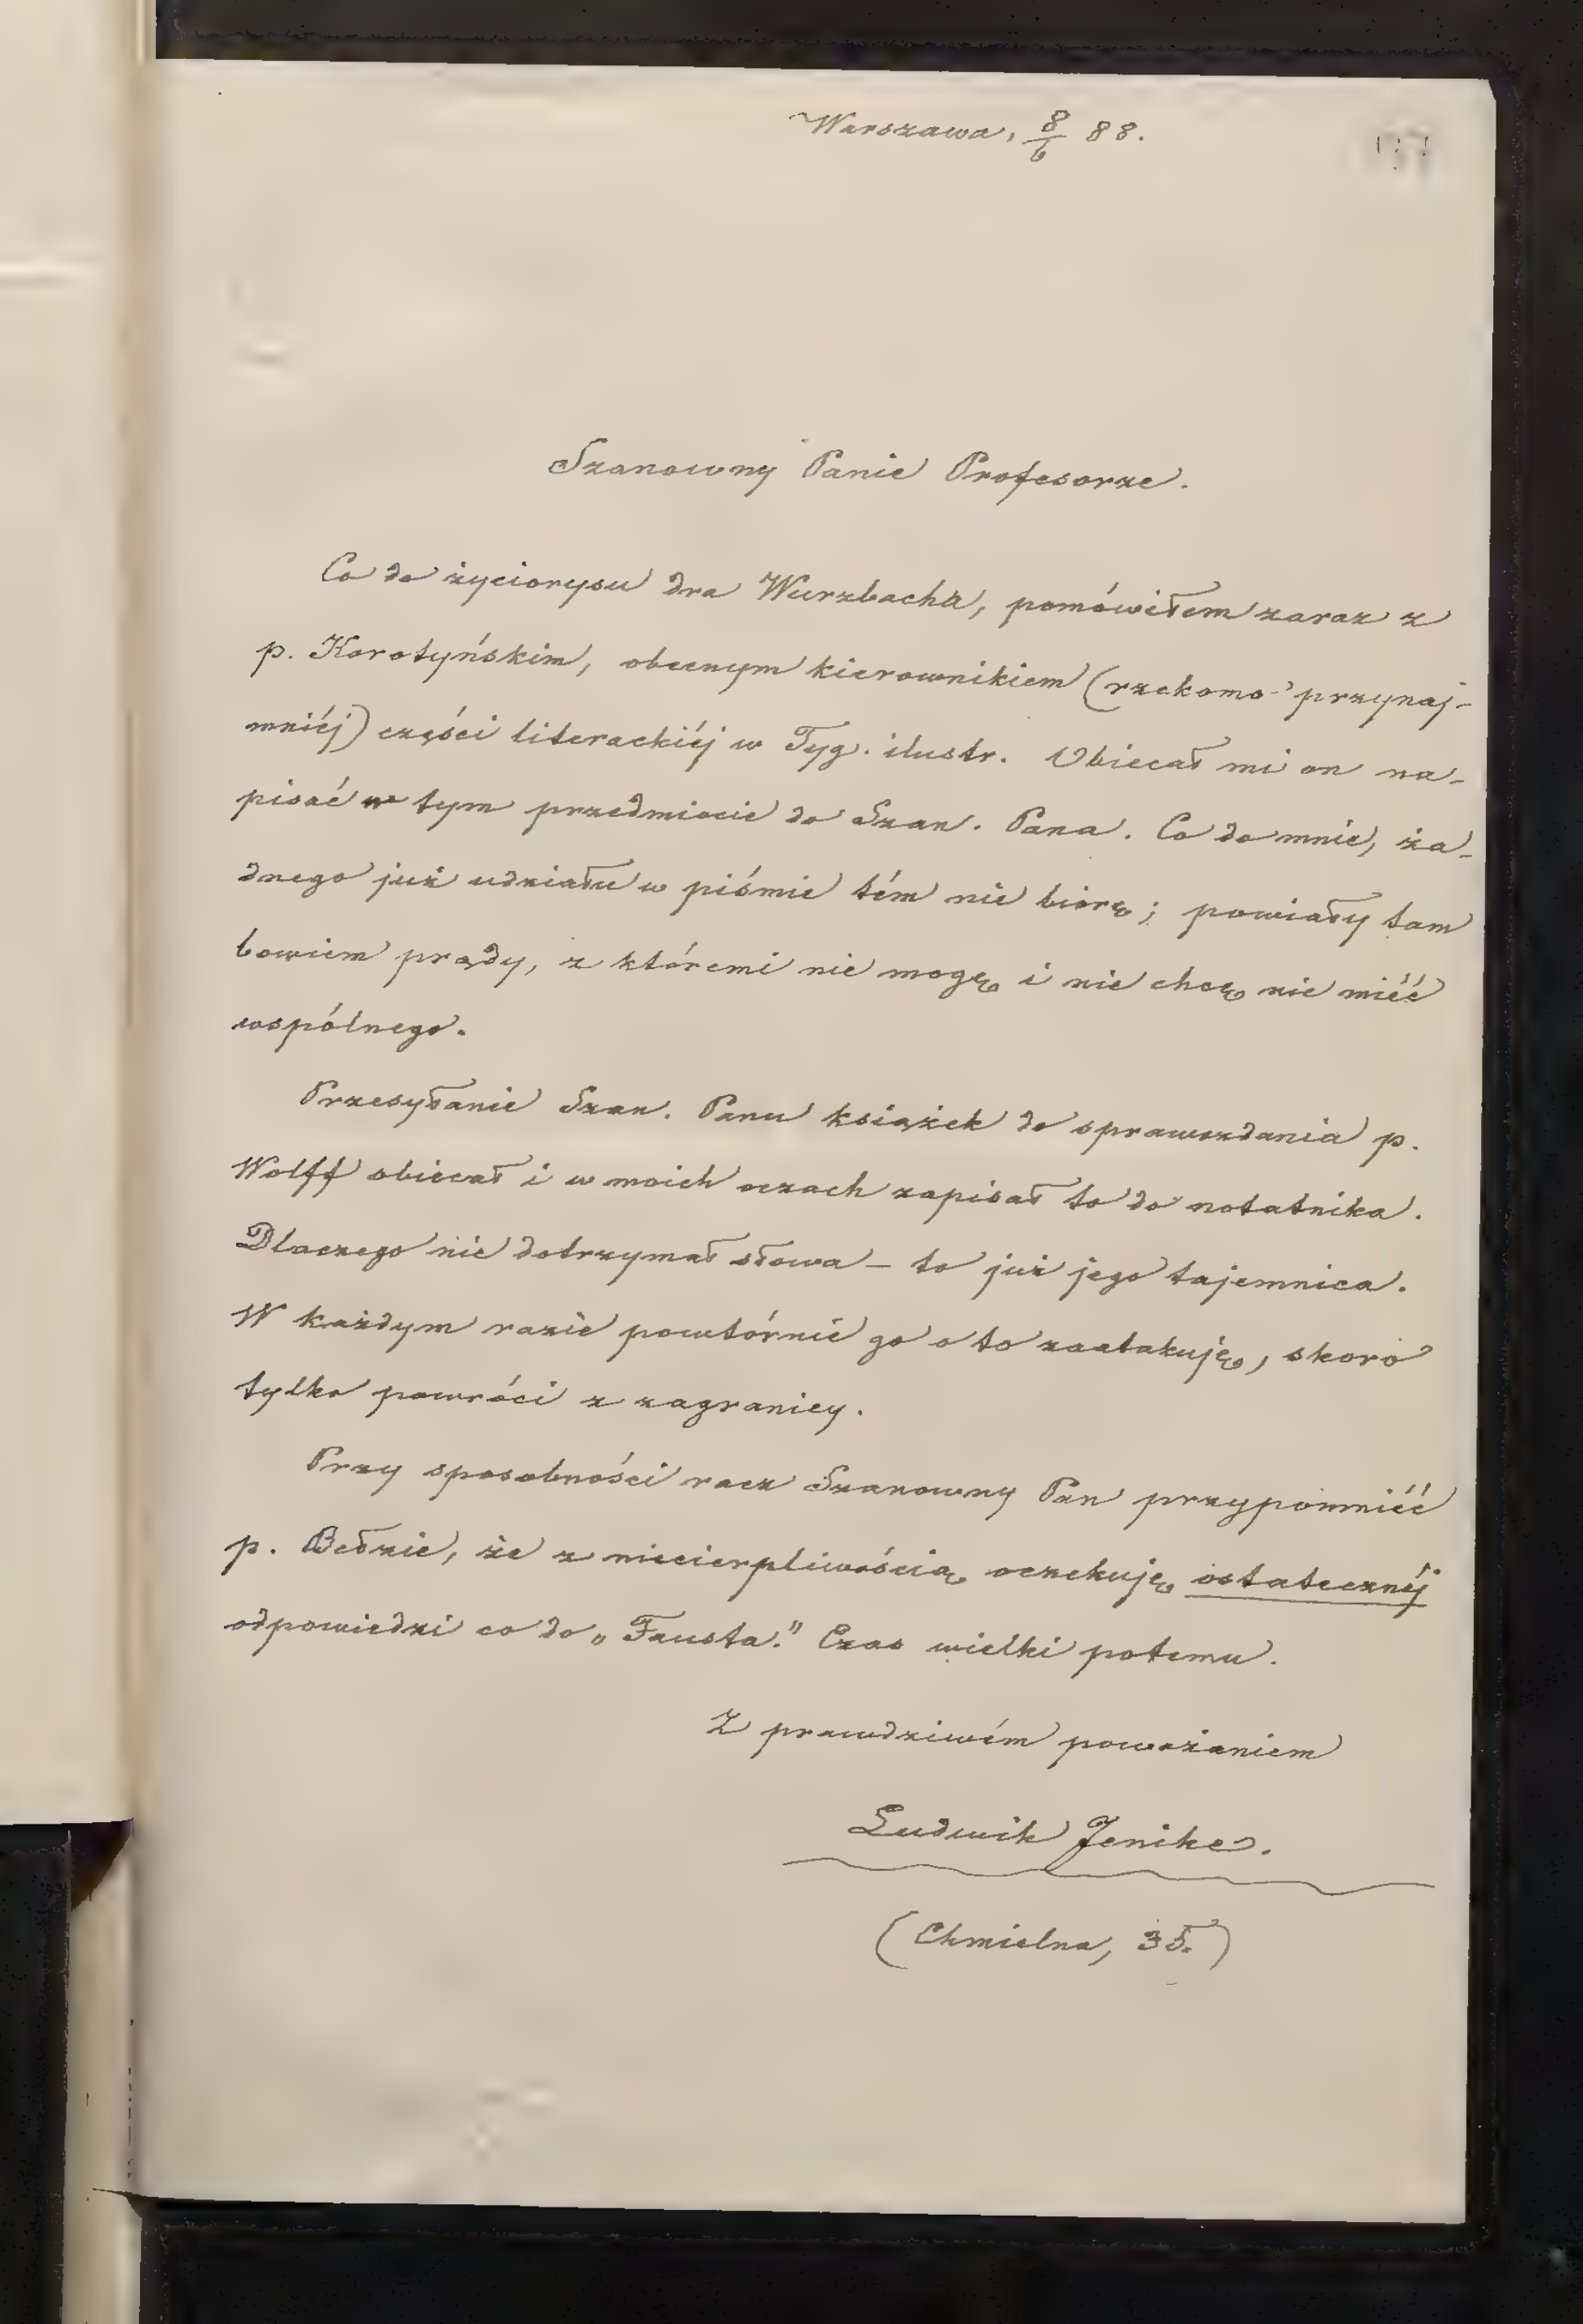 Warszawa, 8/6 88.
Szanowny Panie Profesorze.
Co do życiorysu dra Wurzbacha, pomówiłem zaraz z
p. Korotyńskim, obecnym kierownikiem (rzekomo przynaj-
mniéj) części literackiéj w Tyg. ilustr. Obiecał mi on na-
pisać w tym przedmiocie do Szan. Pana. Co do mnie, ża-
dnego już udziału w piśmie tém nie biorę; powiały tam
bowiem prądy, z któremi nie mogę i nie chcę nic miéć
wspólnego.
Przesyłanie Szan. Panu książek do sprawozdania p.
Wolff obiecał i w moich oczach zapisał to do notatnika.
Dlaczego nie dotrzymał słowa – to już jego tajemnica.
W każdym razie powtórnie go o to zaatakuję, skoro
tylko powróci z zagranicy.
Przy sposobności racz Szanowny Pan przypomniéć
p. Bełzie, że z niecierpliwością oczekuję ostatecznéj
odpowiedzi co do „Fausta." Czas wielki potemu.
Z prawdziwém poważaniem
Ludwik Jenike.
(Chmielna, 35.)